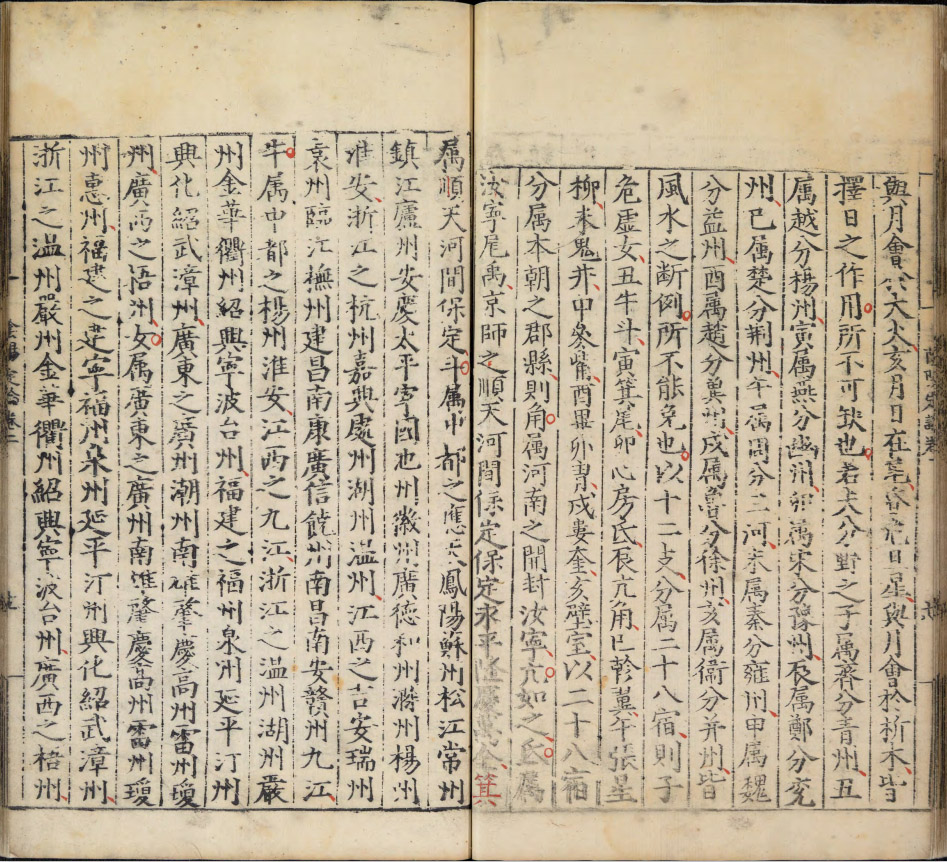 與月會於大火亥月日在尾宿危日星與月會於析木皆
擇日之作用所不可缺也若夫分野之子属齊分青州丑
属越分楊州寅属燕分幽州卯属宋分豫州辰属鄭分兖
州巳属楚分荆州午属周分三河未属秦分雍州申属魏
分益州酉属趙分兾州戌属魯分徐州亥属衞分并州皆
風水之断例所不能免也以十二支分属二十八宿則子
危虚女丑牛斗寅箕尾卯心房氐辰亢角巳軫翼午張星
柳未鬼井申參觜酉畢昴胃戌婁奎亥壁室以二十八宿
分属本朝之郡縣則角属河南之開封汝寧亢如之氐属
汝寧尾禹京師之順天河間保定保定永平箕
属順天河間保定斗属中都之應天鳳陽蘇州松江常州
鎮江廬州安慶太平寧囯池州徽州廣德和州滁州楊州
淮安浙江之杭州嘉興處州湖州温州江西之吉安瑞州
袁州臨江撫州建昌南康廣信饒州南昌南安贛州九江
牛属中都之楊州淮安江西之九江浙江之温州湖州嚴
州金華衢州紹興寧波台州福建之福州泉州延平汀州
興化紹武漳州廣東之廣州潮州南雄肇慶高州雷州瓊
州廣西之梧州女属廣東之廣州南雄肇慶高州雷州瓊
州惠州福建之建寧福州泉州延平汀州興化紹武漳州
浙江之温州嚴州金華衢州紹興寧波台州廣西之梧州